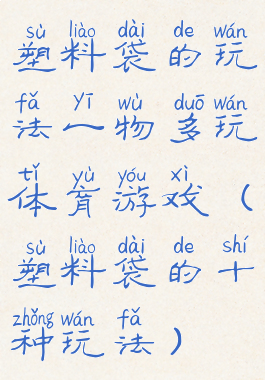 sù liào dài de wán
塑料袋的玩
fǎ yī wù duō wán
法一物多玩
tǐ yù yóu xì
体育游戏（
sù liào dài de shí
塑料袋的十
zhǒng wán fǎ
种玩法）